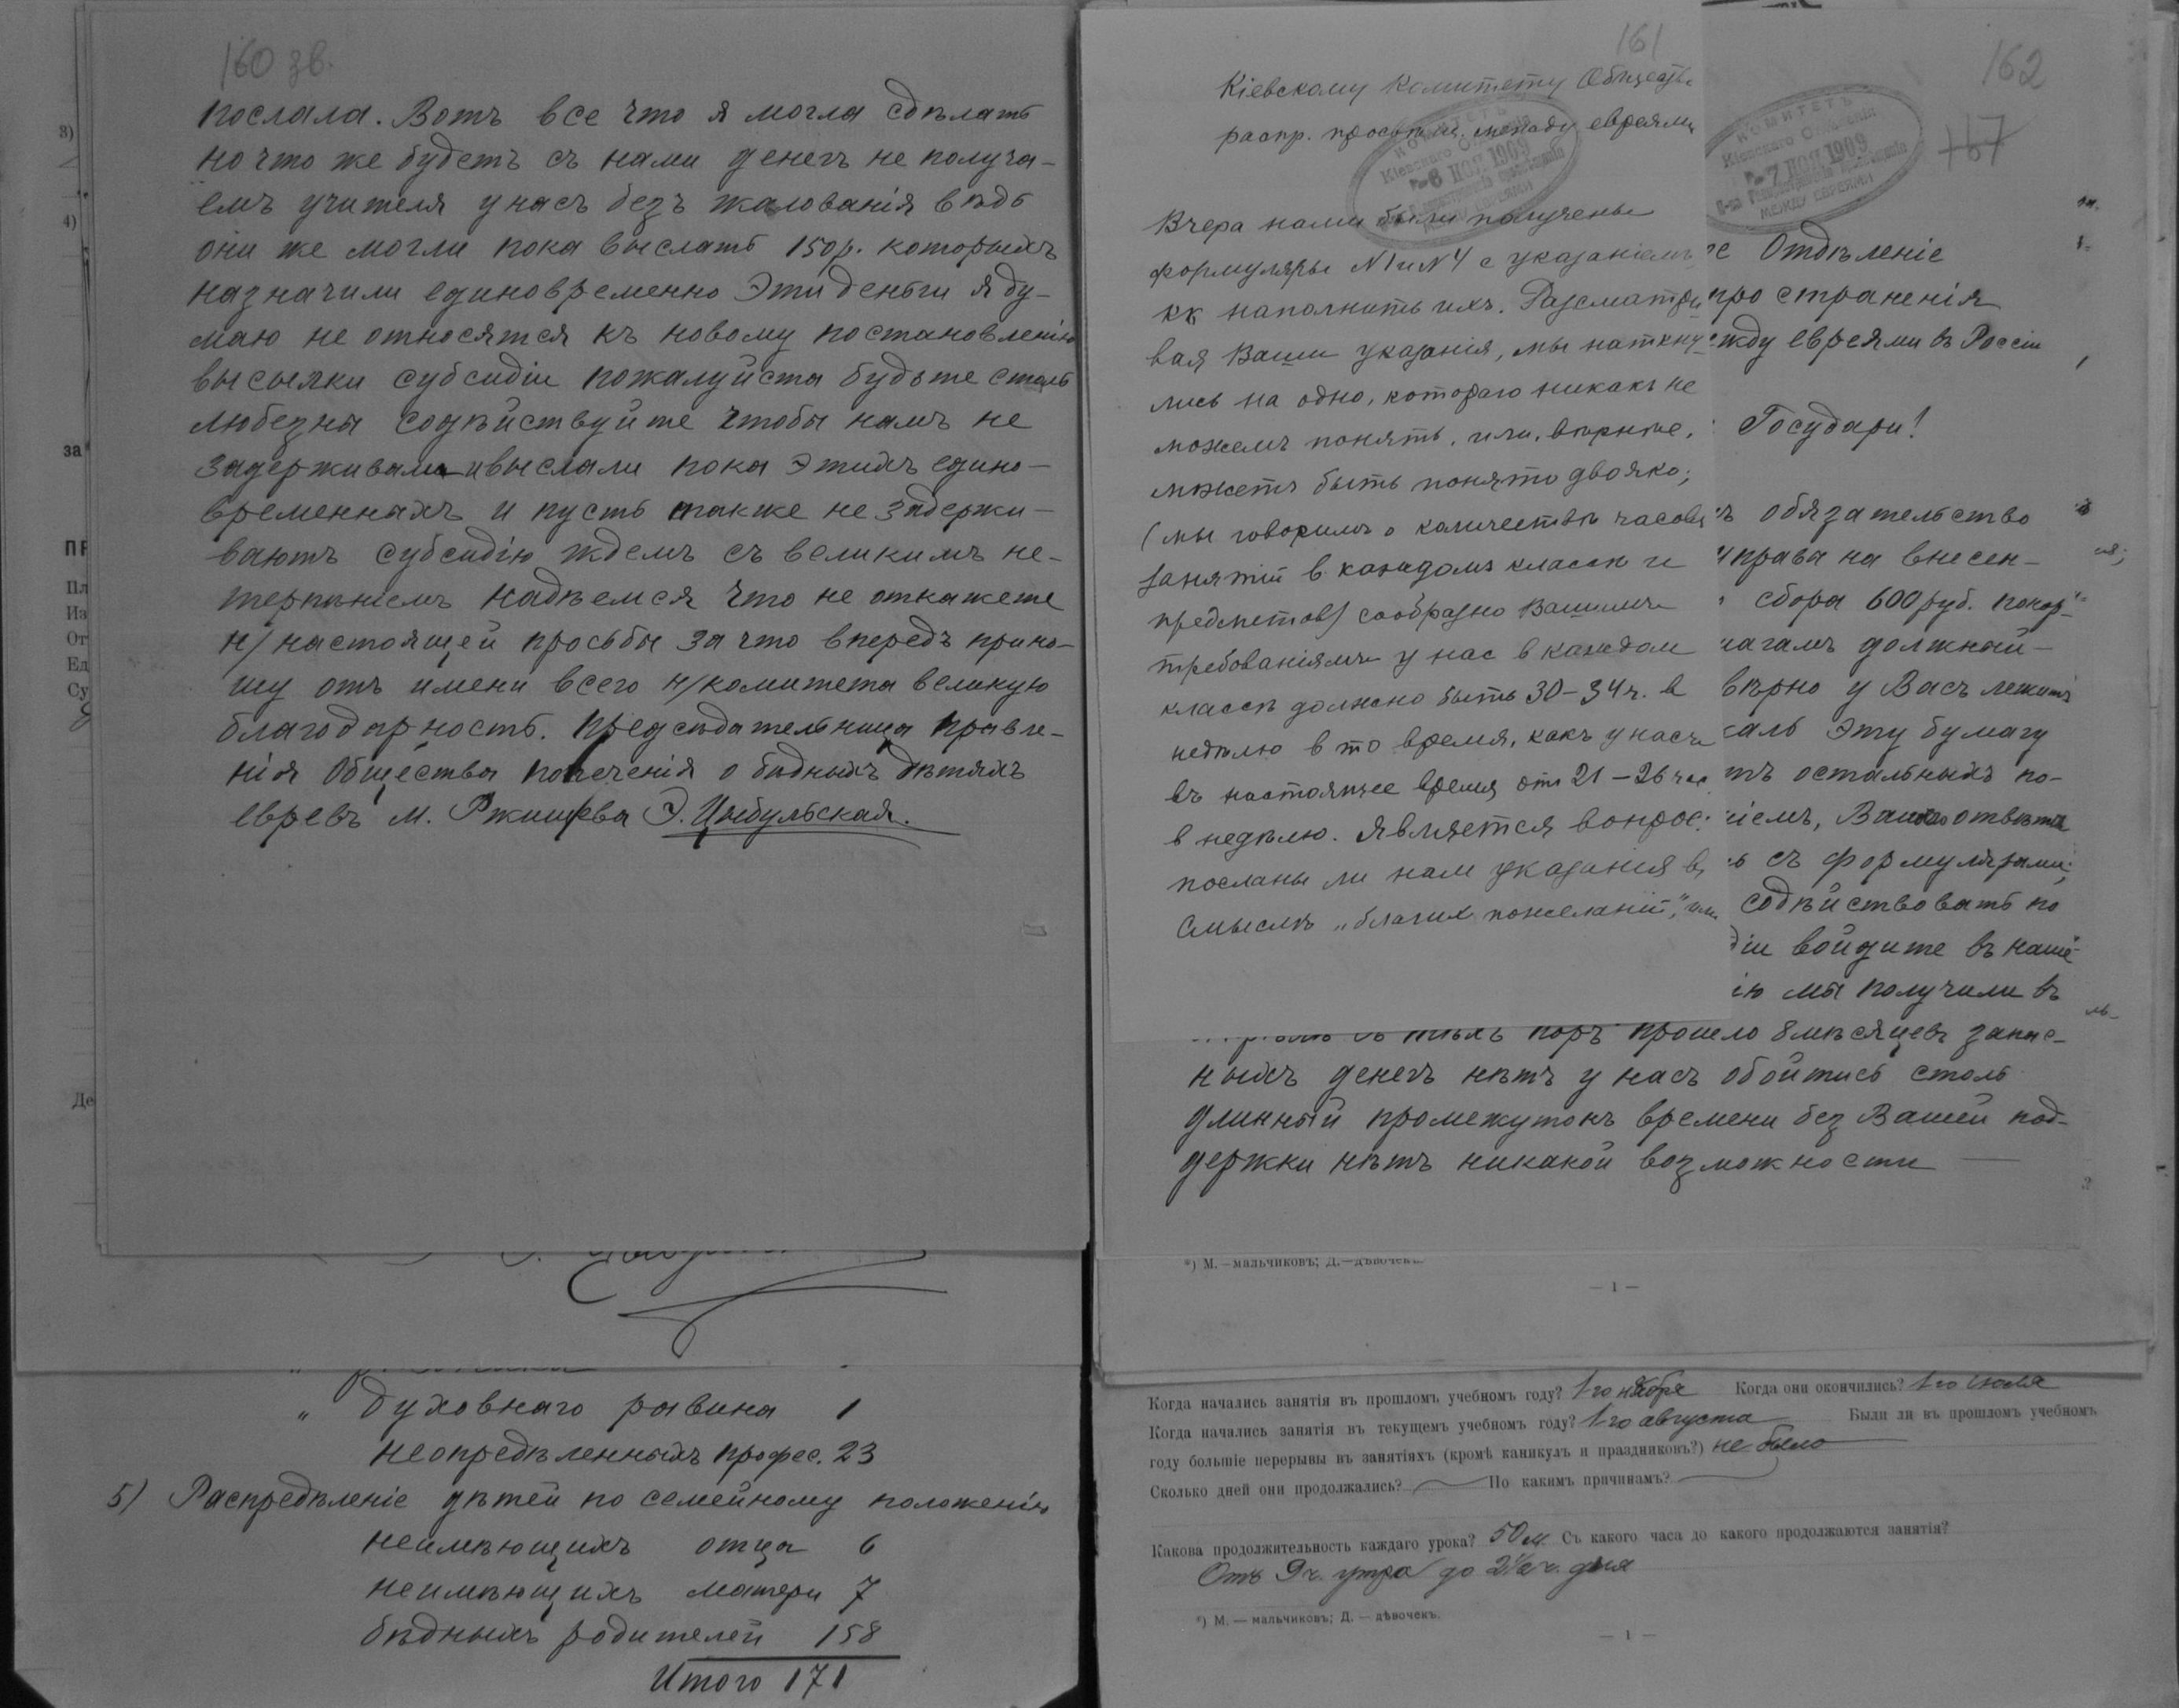 160 зв.
послала. Вотъ все что я могла сдѣлать
но что же будетъ съ нами денегъ не получа-
емъ учителя у насъ безъ жалованія вѣдь
они же могли пока выслать 150 р. которыхъ
назначили единовременно Эти деньги я ду-
маю не относятся къ новому постановленію
высылки субсидіи пожалуйста будьте столь
любезны содѣйствуйте чтобы намъ не
задерживали и выслали пока этихъ едино-
временныхъ и пусть также не задержи-
ваютъ субсидію ждемъ съ великимъ не-
терпѣніемъ надѣемся что не откажете
н/настоящей просьбы за что впередъ прино-
шу отъ имени всего н/комитета великую
благодарность. Предсѣдательница правле-
нія Общества попеченія о бѣдныхъ дѣтяхъ
евреевъ м. Ржищева Э. Цыбульская.
3)
4)
за
Пл
Из
От
Ед
Су
Де
„ духовнаго равина 1
неопредѣленныхъ профес. 23
5) Распредѣленіе дѣтей по семейному положенію
неимѣющихъ отца 6
неимѣющихъ матери 7
бѣдныхъ родителей 158
Итого 171
161
Кіевскому Комитету Обществ.
распр. просвѣщ. между евреями
КОМИТЕТЪ
Кіевскаго Отдѣленія
8 НОЯ 1909
МЕЖДУ ЕВРЕЯМИ
Вчера нами были получены
формуляры N1 и N4 с указаніемъ
кк наполнить ихъ. Разсматри
вая Ваши указанія, мы наткну
лись на одно, котораго никакъ не
можемъ понять, или, вѣрнѣе,
можетъ быть понято двояко;
(мы говоримъ о количествѣ часовъ
занятій в каждомъ классѣ и
предметов) сообразно Вашимъ
требованіямъ у нас в каждом
классѣ должно быть 30–34 ч. в
недѣлю в то время, какъ у насъ
въ настоящее время отъ 21–26 час.
в недѣлю. Является вопрос:
посланы ли нам указанія в
смыслѣ „благих пожеланій",
162
167
КОМИТЕТЪ
Кіевскаго Отдѣленія
7 НОЯ 1909
О-ва Распространенія просвѣщенія
МЕЖДУ ЕВРЕЯМИ
Отдѣленіе
пространенія
жду евреями въ Россіи
Государи!
обязательство
права на внесен-
сбора 600 руб. покор-
лагаемъ должный
вѣрно у Васъ лежитъ
Эту бумагу
остальныхъ по-
съ формулярами;
содѣйствовать по
войдите въ наше
мы получили въ
тѣхъ поръ прошло 8 мѣсяцевъ запас-
ныхъ денегъ нѣтъ у насъ обойтись столь
длинный промежутокъ времени без Вашей под-
держки нѣтъ никакой возможности
*) М.—мальчиковъ; Д.—дѣвочекъ.
— 1 —
Когда начались занятія въ прошломъ учебномъ году? 1-го ноября Когда они окончились? 1-го іюля
Когда начались занятія въ текущемъ учебномъ году? 1-го августа Были ли въ прошломъ учебномъ
году большіе перерывы въ занятіяхъ (кромѣ каникулъ и праздниковъ?) не было
Сколько дней они продолжались? По какимъ причинамъ?
Какова продолжительность каждаго урока? 50 м. Съ какого часа до какого продолжаются занятія?
Отъ 9 ч. утра до 2½ ч. дня
*) М. — мальчиковъ; Д. — дѣвочекъ.
— 1 —